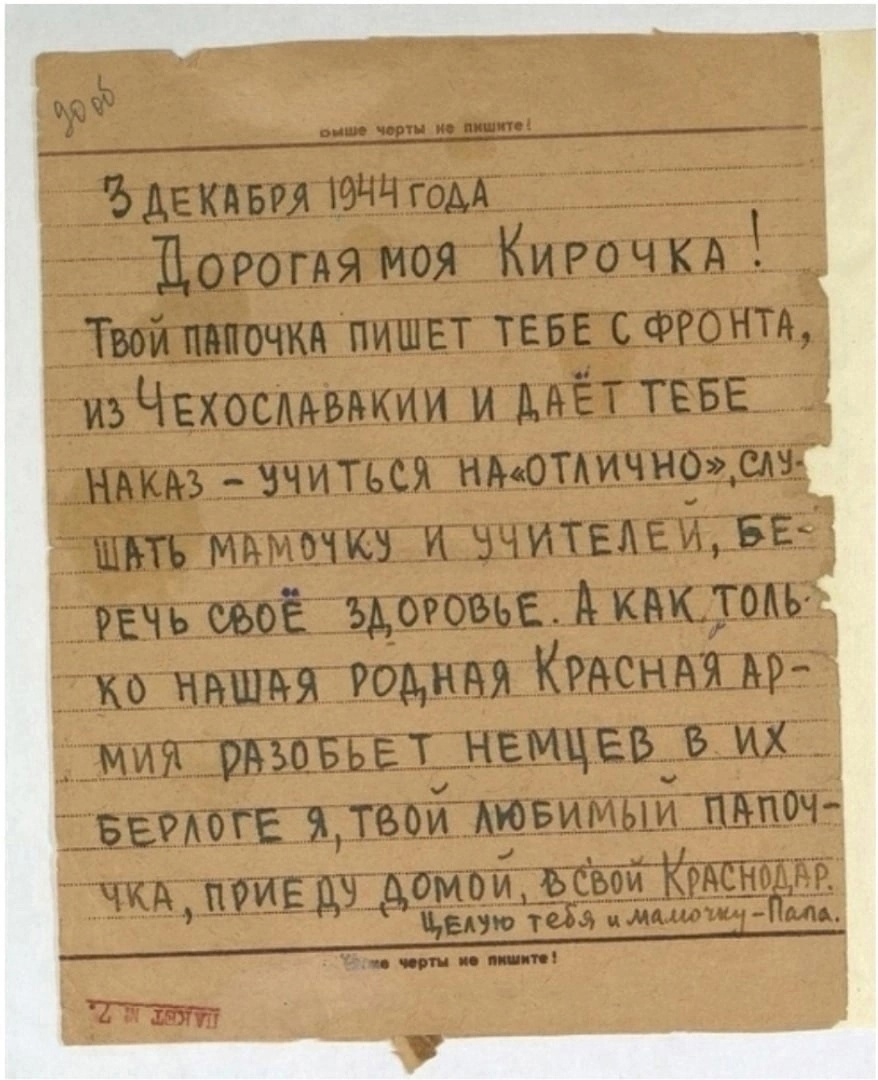 90 об
Выше черты не пишите!
3 ДЕКАБРЯ 1944 ГОДА
ДОРОГАЯ МОЯ КИРОЧКА!
ТВОЙ ПАПОЧКА ПИШЕТ ТЕБЕ С ФРОНТА,
ИЗ ЧЕХОСЛАВАКИИ И ДАЁТ ТЕБЕ
НАКАЗ – УЧИТЬСЯ НА «ОТЛИЧНО», СЛУ-
ШАТЬ МАМОЧКУ И УЧИТЕЛЕЙ, БЕ-
РЕЧЬ СВОЁ ЗДОРОВЬЕ. А КАК ТОЛЬ-
КО НАШАЯ РОДНАЯ КРАСНАЯ АР-
МИЯ РАЗОБЬЕТ НЕМЦЕВ В ИХ
БЕРЛОГЕ Я, ТВОЙ ЛЮБИМЫЙ ПАПОЧ-
ЧКА, ПРИЕДУ ДОМОЙ, В СВОЙ КРАСНОДАР.
ЦЕЛУЮ тебя и мамочку – Папа.
черты не пишите!
ПАКЕТ № 7.